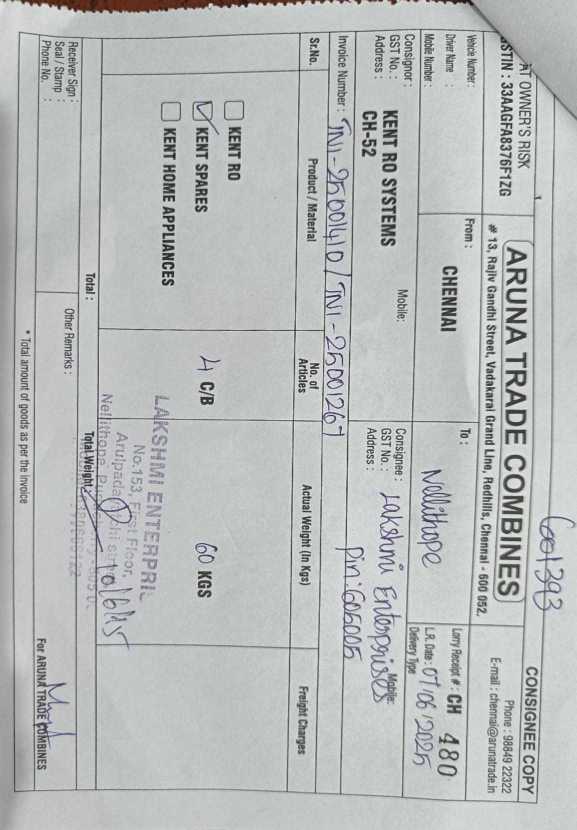 6001393
AT OWNER'S RISK
CONSIGNEE COPY
STIN : 33AAGFA8376F1ZG
ARUNA TRADE COMBINES
Phone : 98849 22322
# 13, Rajiv Gandhi Street, Vadakarai Grand Line, Redhills, Chennai - 600 052.
E-mail : chennai@arunatrade.in
Vehicle Number :
Driver Name :
Mobile Number :
From :
CHENNAI
To :
Nellithope
Lorry Receipt # : CH 480
L.R. Date : 07/06/2025
Delivery Type
Consignor :
GST No. :
Address :
KENT RO SYSTEMS
CH-52
Mobile:
Consignee : Lakshmi Enterprises
GST No. :
Address :
Mobile:
Pin: 605005
Invoice Number : TN1-25001410 / TN1-25001267
Sr.No.
Product / Material
No. of Articles
Actual Weight (In Kgs)
Freight Charges
KENT RO
KENT SPARES
4 C/B
60 KGS
KENT HOME APPLIANCES
LAKSHMI ENTERPRI
No.153, First Floor,
Nellithope,
Total :
Total Weight
10/6/15
Receiver Sign :
Seal / Stamp :
Phone No. :
Other Remarks :
For ARUNA TRADE COMBINES
* Total amount of goods as per the Invoice